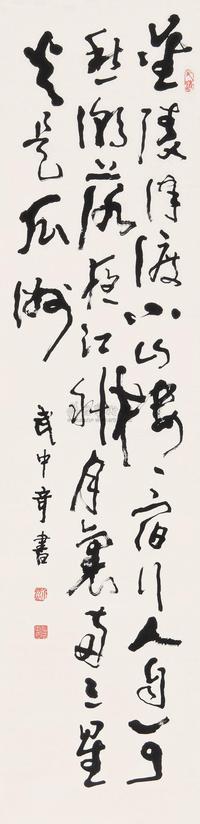 金陵津渡小山樓一宿行人自可
愁潮落夜江斜月裏兩三星
火是瓜洲
武中奇書